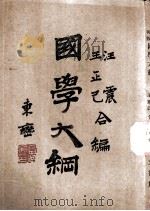 汪震
王正己合編
國學大綱
東壁